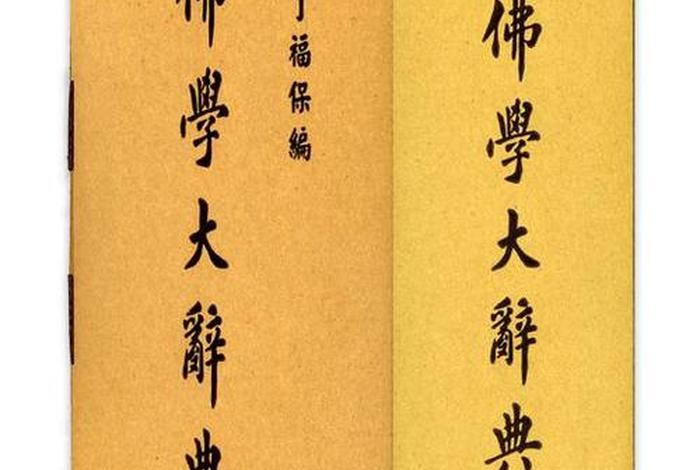 佛學大辭典
丁福保編
佛學大辭典